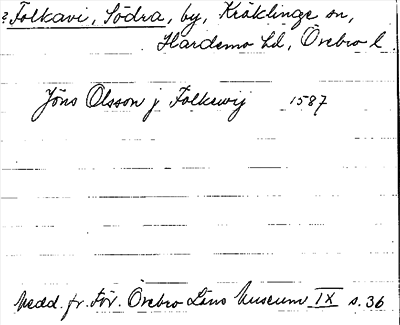 ? Folkavi, Södra, by, Kräklinge sn,
Hardemo hd, Örebro l.
Jöns Olsson j Folkewij 1587
Medd. fr. För. Örebro Läns Museum IX s. 36